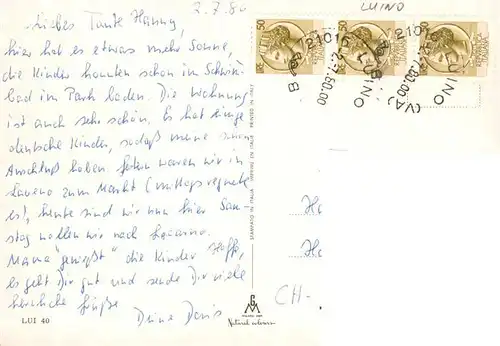 2.7.80
Liebes Tante Hanny,
hier hat es etwas mehr Sonne,
die Kinder konnten schon im Schwimm-
bad im Park baden. Die Wohnung
ist auch sehr schön. Es hat einige
deutsche Kinder, sodaß meine schon
Anschluß haben. Gestern waren wir in
Laveno zum Markt (mittags regnete
es), heute sind wir nun hier. Sam-
stag wollen wir nach Locarno.
Mama "genießt" die Kinder. Hoffe,
es geht Dir gut und sende Dir viele
herzliche Grüße
Deine Doris
LUI 40
STAMPATO IN ITALIA
PRINTED IN ITALY
Natural colours
LUINO
50
50
50
21016 LUINO
(VA)
CH-